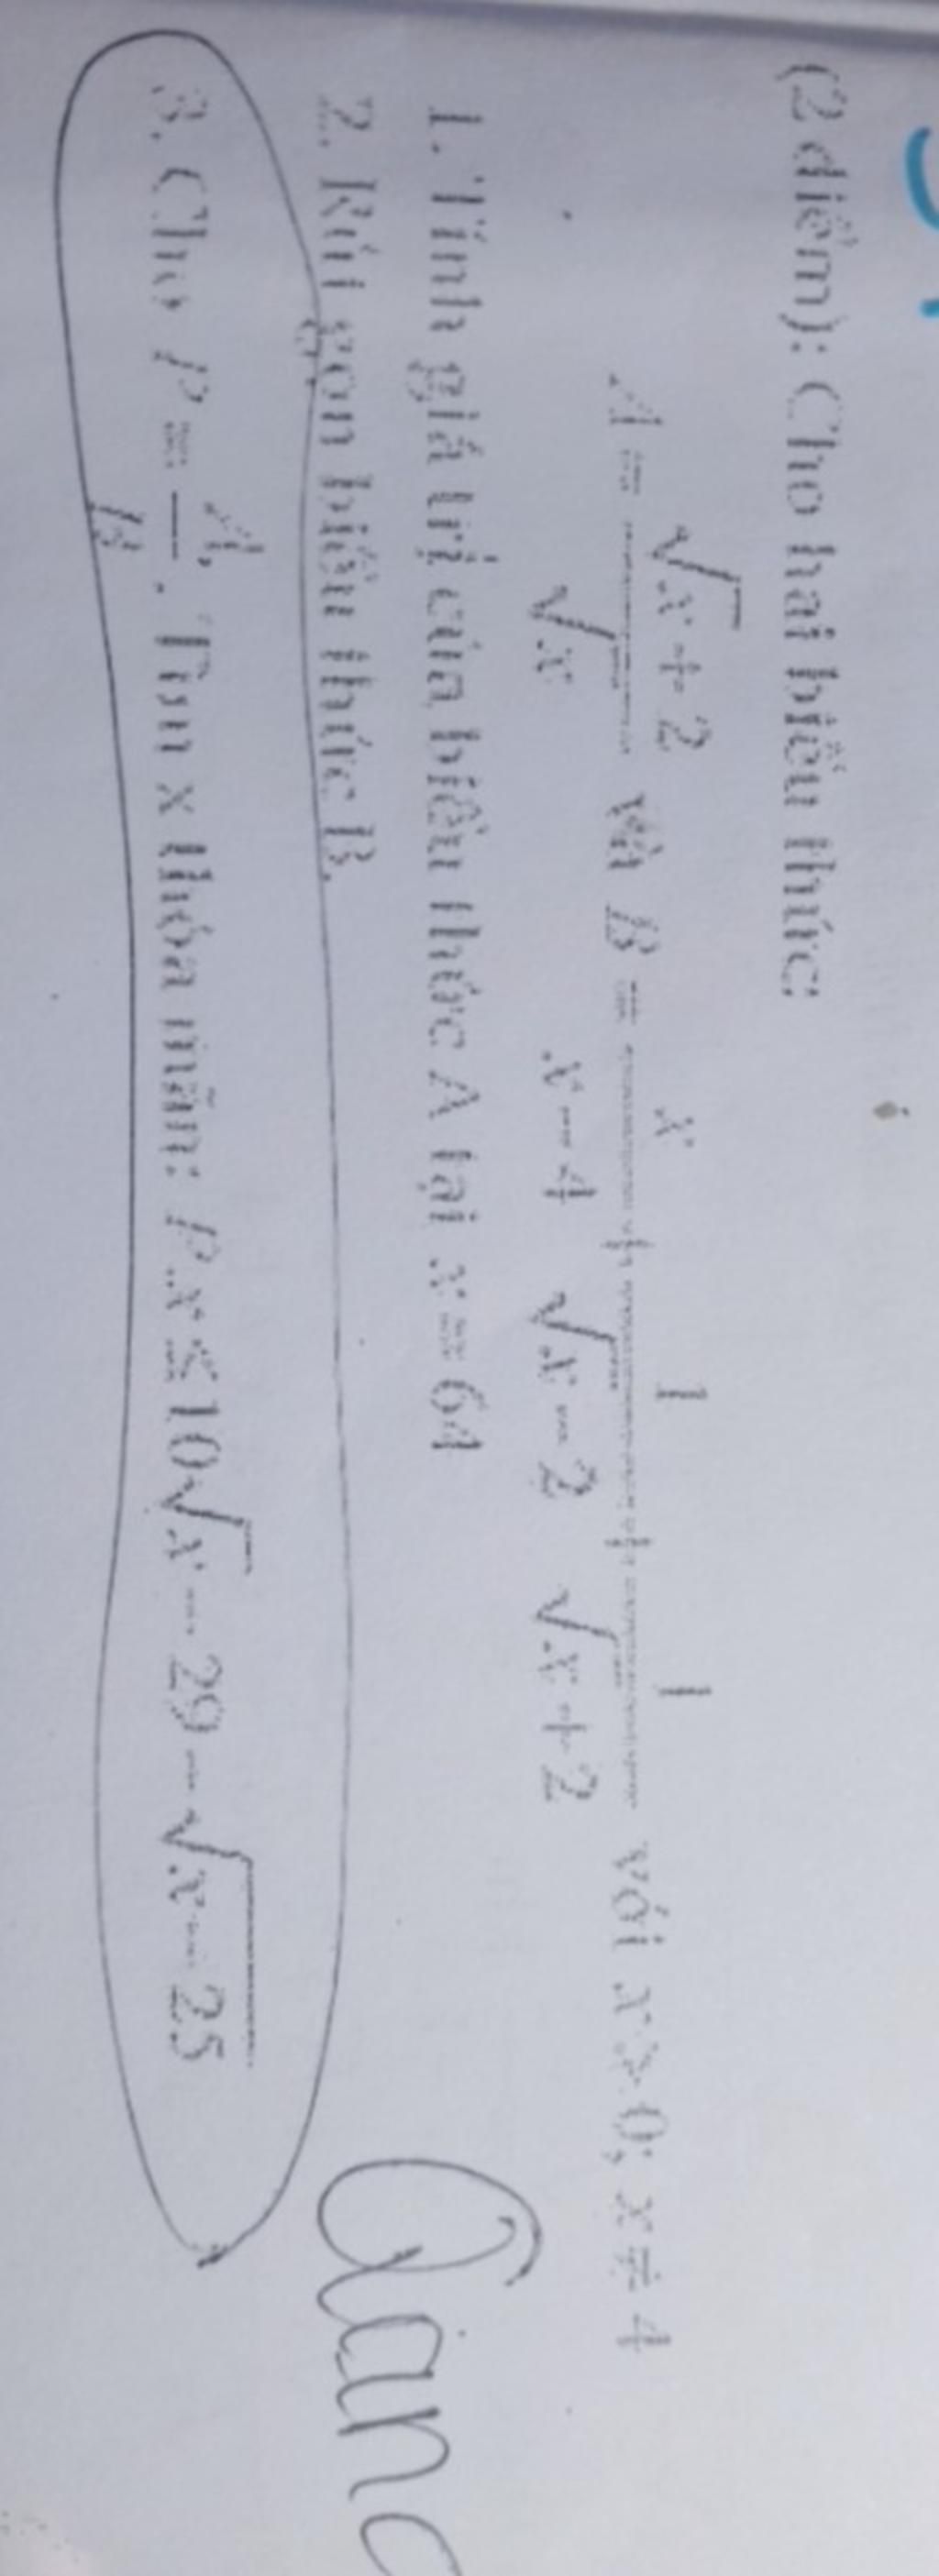 (2 điểm): Cho hai biểu thức:
A = (√x + 2)/√x và B = x/(x − 4) + 1/(√x − 2) + 1/(√x + 2) với x > 0; x ≠ 4
1. Tính giá trị của biểu thức A tại x = 64
2. Rút gọn biểu thức B.
3. Cho P = A/B. Tìm x thỏa mãn: P.x ≤ 10√x − 29 − √(x − 25)